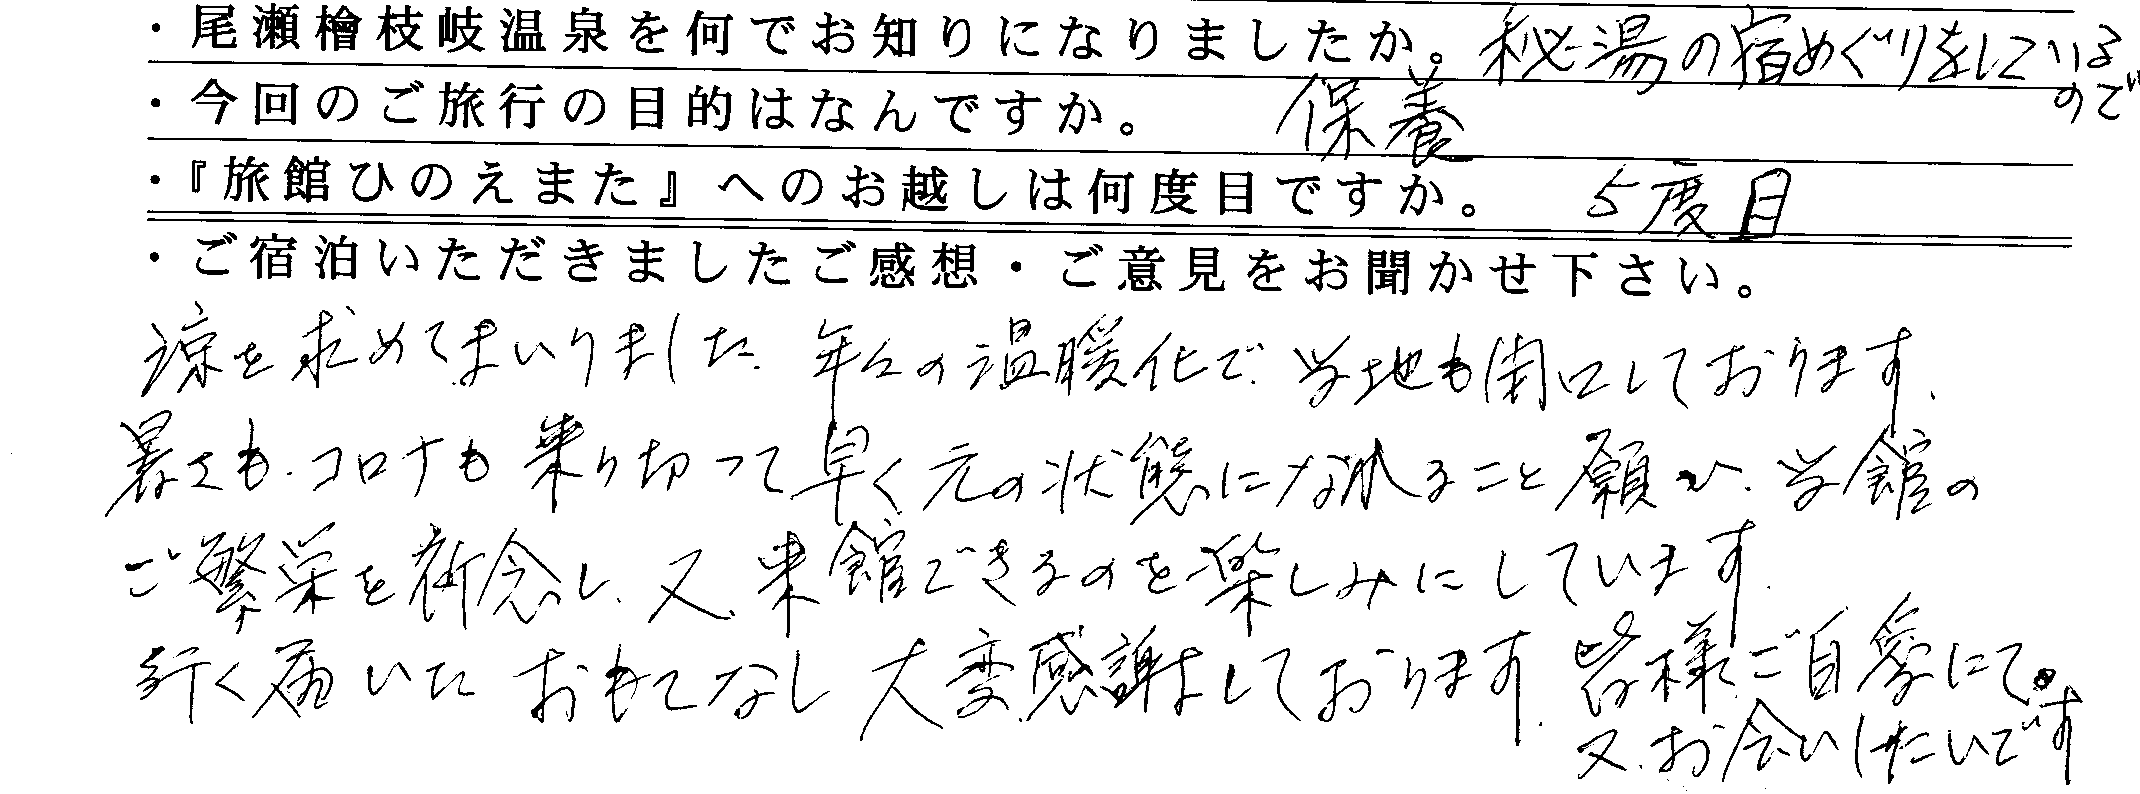 ・尾瀬檜枝岐温泉を何でお知りになりましたか。秘湯の宿めぐりをしているので
・今回のご旅行の目的はなんですか。 保養
・『旅館ひのえまた』へのお越しは何度目ですか。 5度目
・ご宿泊いただきましたご感想・ご意見をお聞かせ下さい。
涼を求めてまいりました、年々の温暖化で、当地も閉口しております、
暑さも、コロナも乗り切って早く元の状態になれること願い、当館の
ご繁栄を祈念し、又、来館できるのを楽しみにしています、
行く届いた おもてなし 大変感謝しております、皆様、ご自愛にて。
又、お会いしたいです